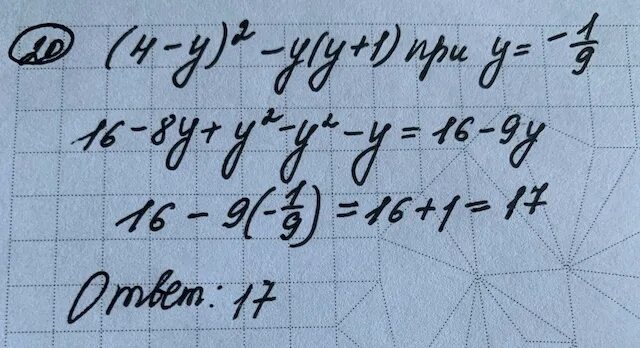 20 (4-y)² - y(y+1) при y = -1/9
16 - 8y + y² - y² - y = 16 - 9y
16 - 9(-1/9) = 16 + 1 = 17
Ответ: 17